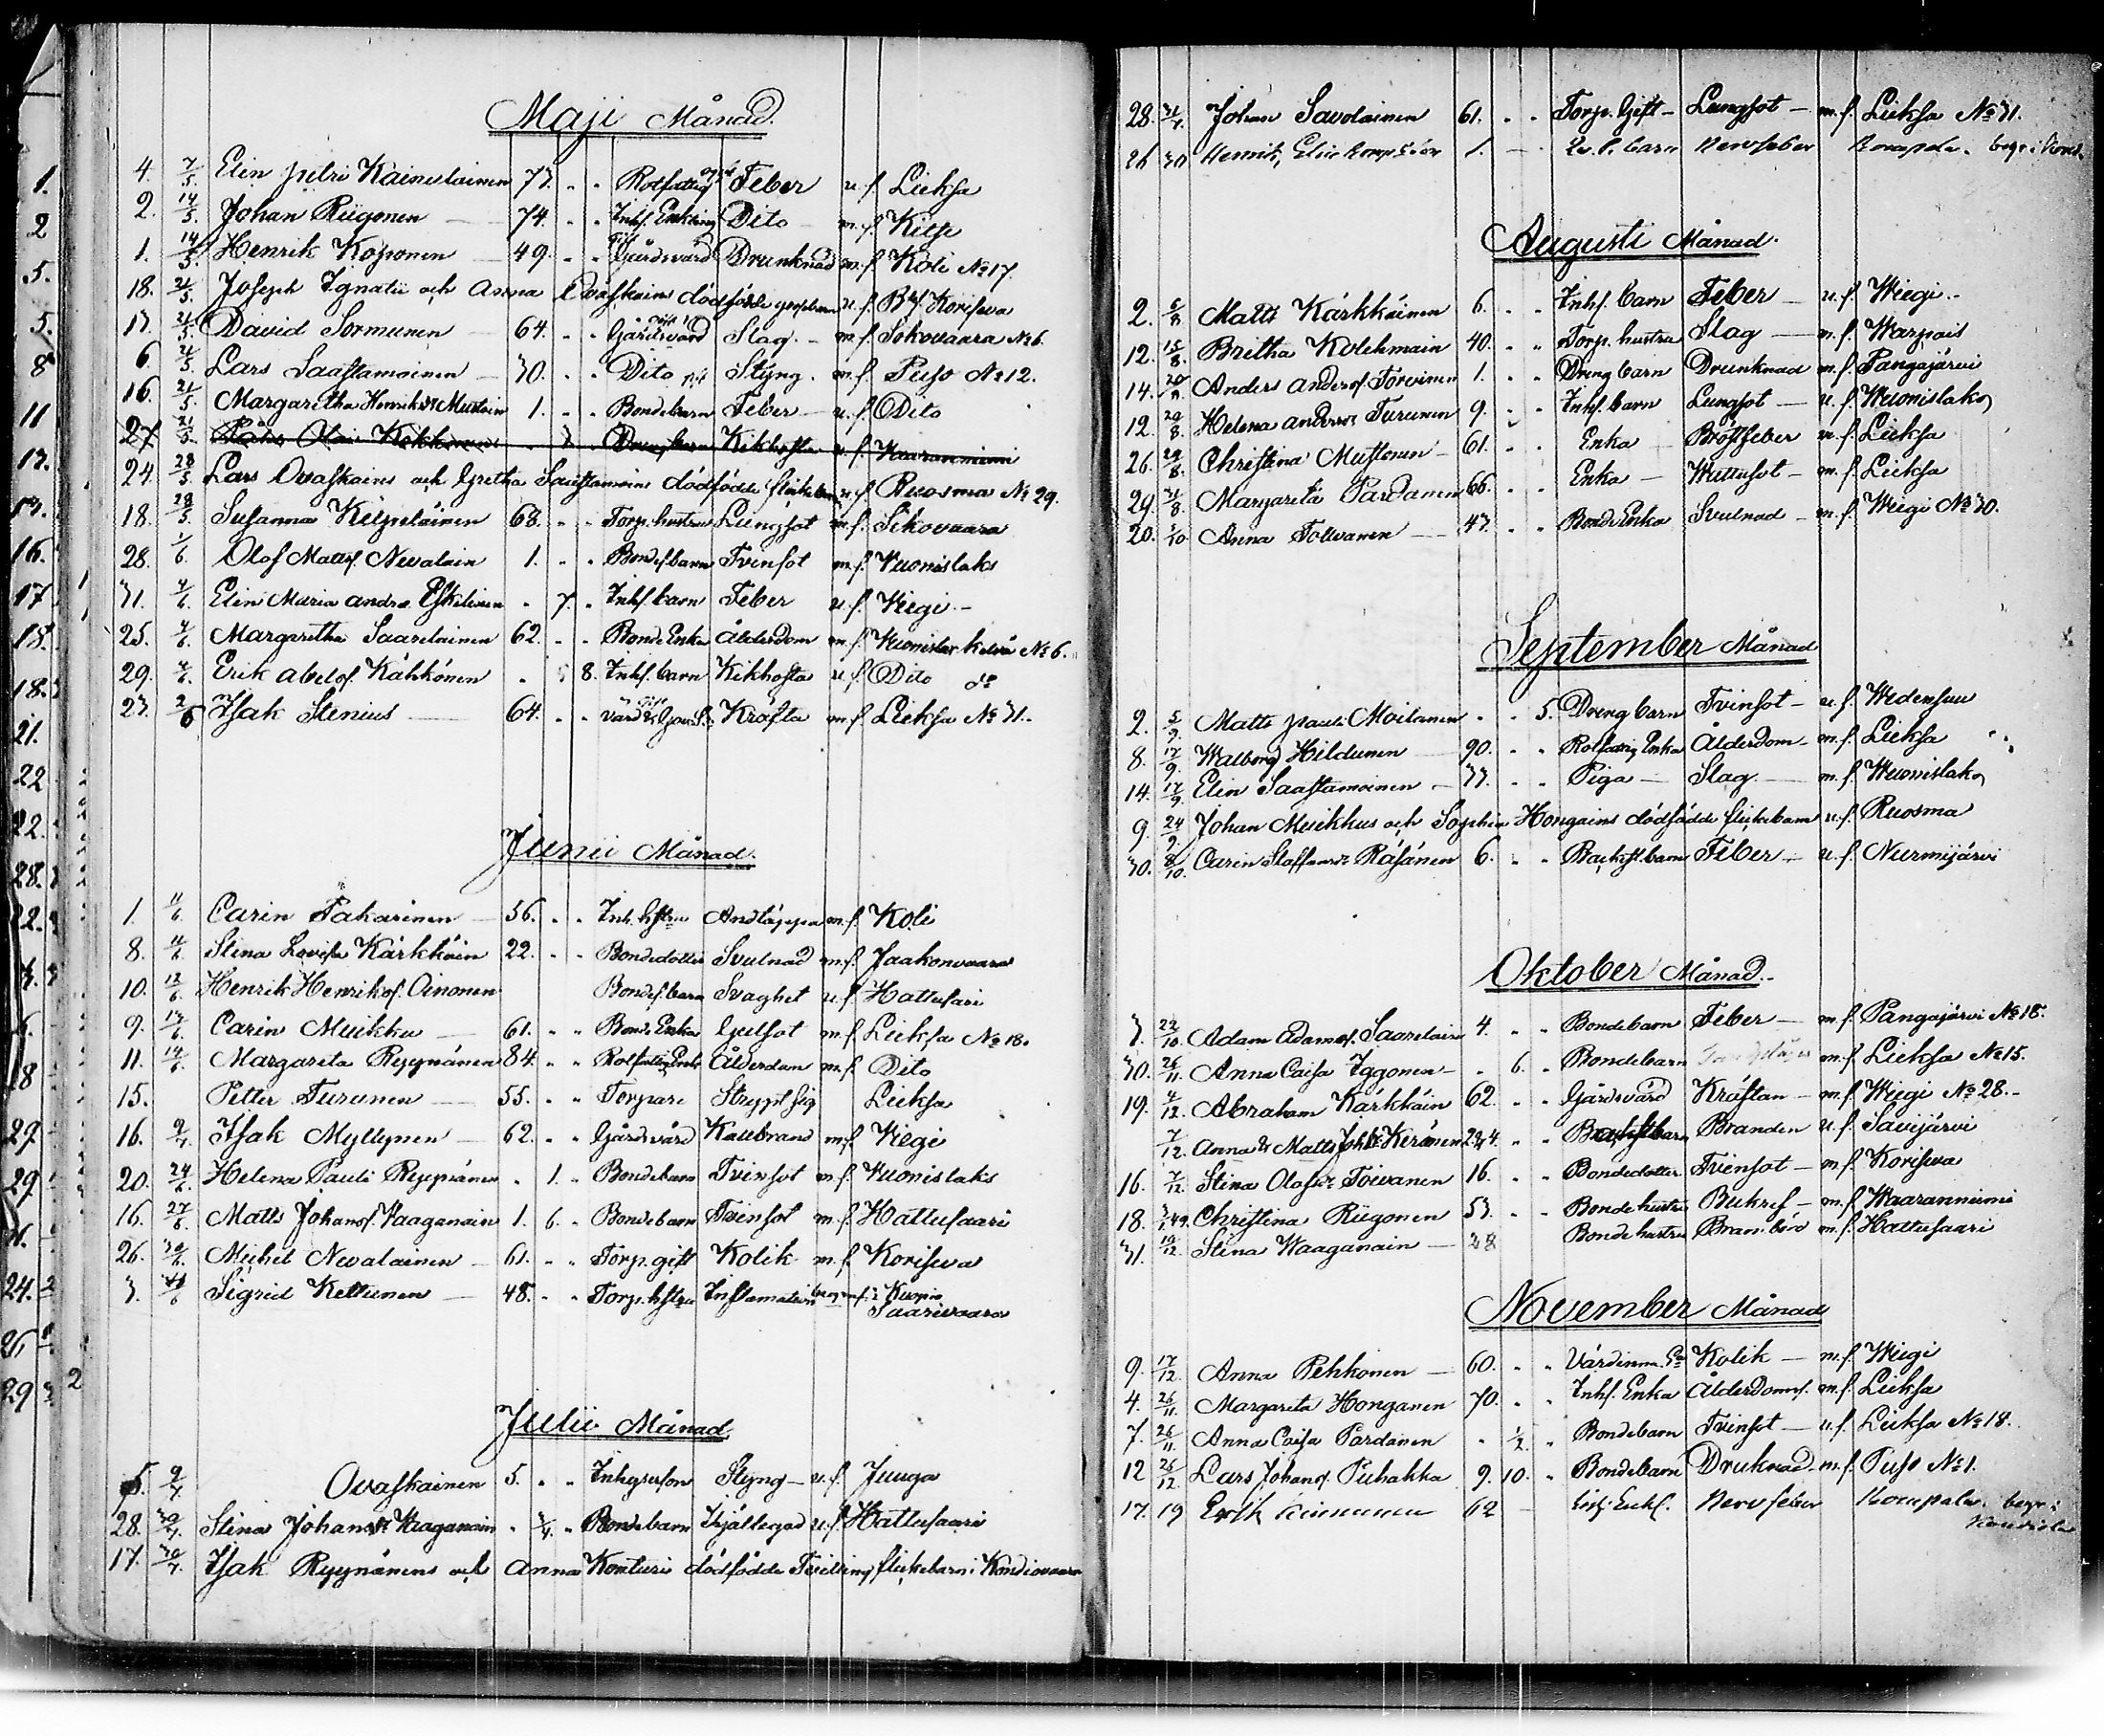 Maji Månad.
4. 7/5. Elin Petri Kainulainen 73. Rotfattig Feber u.f. Lieksa
2. 14/5. Johan Riigonen 74. Inhs. Enkling Dito m.f. Kitse
1. 14/5. Henrik Koponen 49. Gårdsvärd Drunknad m.f. Koli No 17.
18. 21/5. Joseph Ignatii och Anna Ovaskains dödfödde u.f. Korisewa
13. 21/5. David Sormunen 64. Gårdsvärd Slag. m.f. Sokovaara No 6.
6. 21/5. Lars Saastamoinen 30. Dito Styng. m.f. Puso No 12.
16. 21/5. Margaretha Henriksdr Mustoin 1. Bondebarn Feber u.f. Dito
27. 21/5. Kokkonen Kikhosta u.f. Waaranniemi
24. 28/5. Lars Ovaskains och Gretha Saastamoins dödfödde flickebarn u.f. Ruosma No 29.
18. 28/5. Susanna Kilpeläinen 68. Torp. hustru Lungsot m.f. Sikovaara
28. 1/6. Olof Matts. Nevalain 1. Bondes. barn Tvinsot m.f. Wuonislaks
31. 4/6. Elin Maria Andrs. Eskelinen 7. Inhs. barn Feber u.f. Wiegi
25. 4/6. Margaretha Saarelainen 62. Bonde Enka Ålderdom m.f. Wuonislax Kelvä No 6.
29. 4/6. Erik Abelss. Kähkönen 8. Inhs. barn Kikhosta u.f. Dito do
23. 2/6 Isak Stenius 64. Kräfta m.f. Lieksa No 31.
Junii Månad.
1. 11/6. Carin Takarinen 56. Inh. hstru Andtäppa m.f. Koli
8. 11/6. Stina Lovisa Kärkkäin 22. Bondedotter Svulnad m.f. Jaakonvaara
10. 12/6. Henrik Henrikss. Oinonen Bondes. barn Svaghet u.f. Hattusari
9. 13/6. Carin Muikku 61. Bonde Enka Gulsot m.f. Lieksa No 18.
11. 14/6. Margareta Ryynänen 84. Rotfattig Enka Ålderdom m.f. Dito
15. Petter Turunen 55. Torpare Strypt sig Lieksa
16. 9/7. Isak Myllynen 62. Gårdsvärd Kallbrand m.f. Wiegi
20. 24/6. Helena Pauli Ryynänen 1. Bondebarn Tvinsot m.f. Wuonislaks
16. 27/6. Matts Johanss. Waaganain 1. 6. Bondebarn Tvinsot m.f. Hattusaari
26. 30/6. Michel Nevalainen 61. Torp. gift Kolik m.f. Korisewa
3. Sigrid Kettunen 48. Torp. hstru Inflamation Kuopio
Saarivaara
Julii Månad.
5. 9/7. Ovaskainen 5. Inhysesson Styng u.f. Juuga
28. 30/7. Stina Johansdr Waaganain 3/4. Bondebarn Ihjällegad u.f. Hattusaari
17. 30/7. Isak Ryynänens och Anna Konturis dödfödde Tvilling flickebarn i Kondiovaara
28. 31/7. Johan Savolainen 61. Torp. Gift Lungsot m.f. Lieksa No 31.
26 30 Henrik, 1. barn Nervfeber begr.
Augusti Månad.
2. 6/8 Matts Kärkkäinen 6. Inhs. barn Feber u.f. Wiegi
12. 15/8. Britha Kolehmain 40. Torp. hustru Slag m.f. Warpais
14. 20/8 Anders Anderss. Törvinen 1. Dreng barn Drunknad m.f. Pangajärvi
12. 29/8. Helena Andersdr Turunen 9. Inhs. barn Lungsot u.f. Wuonislaks
26. 29/8. Christina Mustonen 61. Enka Bröstfeber m.f. Lieksa
29. 31/8. Margareta Pardanen 66. Enka Wattusot m.f. Lieksa
20. 1/10 Anna Tolvanen 43. Bonde Enka Svulnad m.f. Wiegi No 30.
September Månad
2. 5/9. Matts Pauli Moilanen 5. Dreng barn Tvinsot u.f. Wedensuu
8. 17/9. Walborg Hildunen 90. Rotfattig Enka Ålderdom m.f. Lieksa
14. 17/9. Elin Saastamoinen 33. Piga Slag m.f. Wuonislaks
9. 24/9 Johan Muikkus och Sophia Hongains dödfödde flickebarn u.f. Ruosma
30. 8/10. Carin Staffansdr Räsänen 6. Backst. barn Feber u.f. Nurmijärvi
Oktober Månad.
3. 22/10. Adam Adamss. Saarelain 4. Bondebarn Feber m.f. Pangajärvi No 18.
30. 26/11. Anna Caisa Iggonen 6. Bondebarn m.f. Lieksa No 15.
19. 4/12. Abraham Kärkkäin 62. Gårdsvärd Kräftan m.f. Wiegi No 28.
7/12. Anna & Matts Keränen 2 & 4. Backst. barn Branden u.f. Savijärvi
16. 7/12. Stina Olofsdr Toivanen 16. Bondedotter Tvinsot m.f. Korisewa
18. Christina Riigonen 53. Bondehustru Bukref m.f. Waaranniemi
31. 10/12. Stina Waaganain 28 Bondehustru m.f. Hattusaari
November Månad
9. 17/12. Anna Pehkonen 60. Värdinna Kolik m.f. Wiegi
4. 26/11. Margareta Honganen 70. Inhs. Enka Ålderdoms. m.f. Lieksa
7. 26/11. Anna Caisa Pardanen 1/2. Bondebarn Tvinsot u.f. Lieksa No 18.
12 26/12 Lars Johanss. Puhakka 9. 10. Bondebarn Druknad m.f. Puso No 1.
17. 19 Erik 62 Nervfeber begr. i